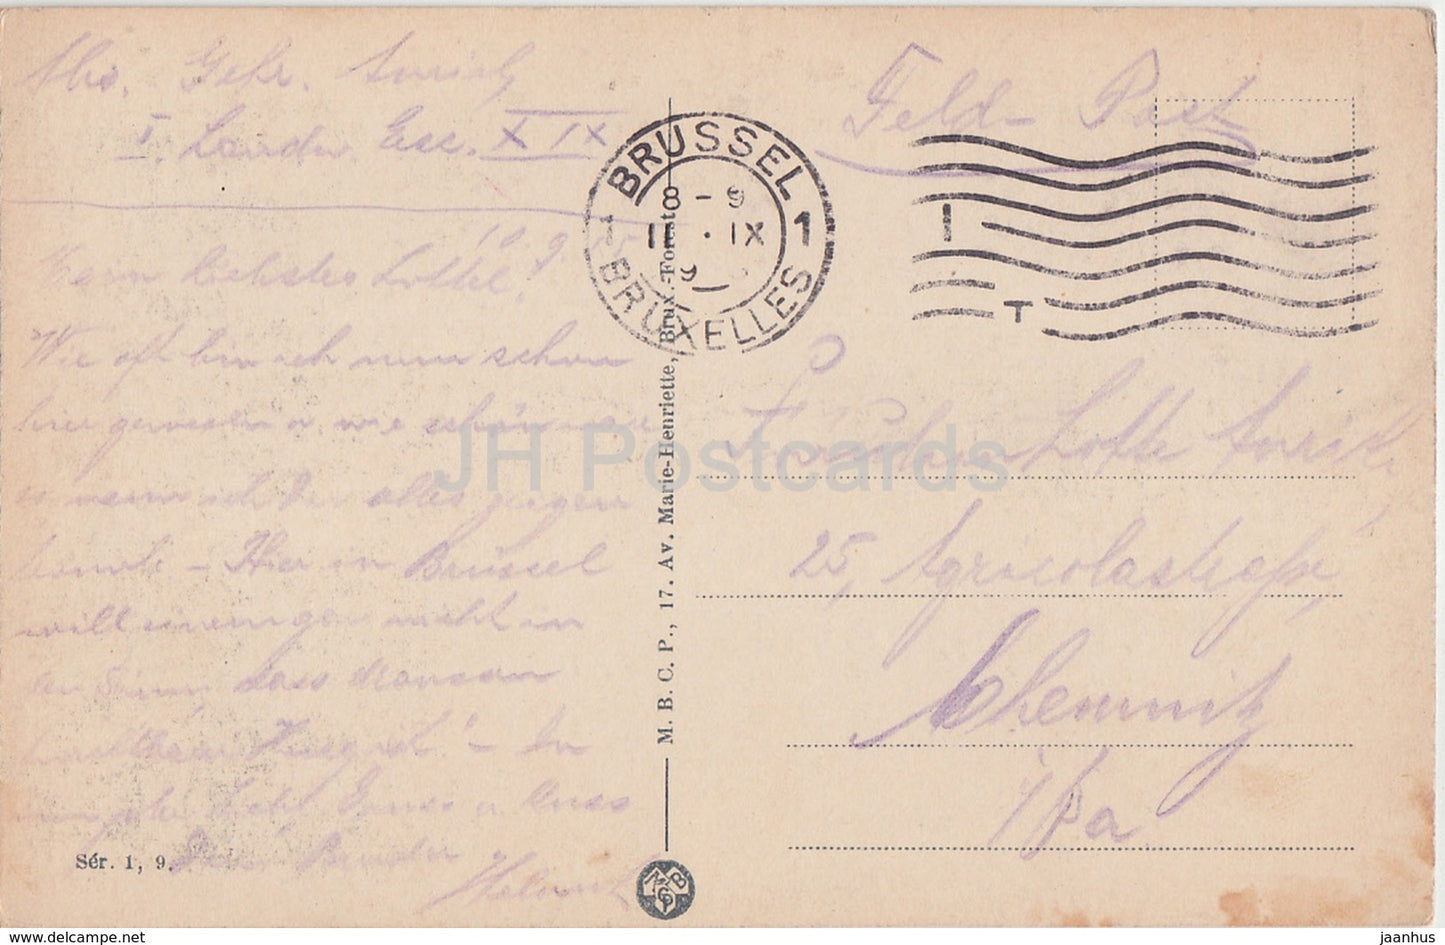 Abs. Gefr.
I. Landw. Esc. XIX
Feld-Post
BRUSSEL
1 8-9 1
IX
BRUXELLES
10.9.15
Mein liebstes Lottel!
Wie oft bin ich nun schon
hier gewesen u. wie schön
wenn ich Dir alles zeigen
könnte - Hier in Brüssel
will einem gar nicht in
den Sinn, dass draussen
Krieg ist! -
Gruss u. Kuss
Dein Bruder
Helmut
Fräulein Lotte
25, Agricolastraße,
Chemnitz
i/Sa.
M. B. C. P., 17. Av. Marie-Henriette, Brux.-Forest
Sér. 1, 9.
JH Postcards
www.delcampe.net
jaanhus